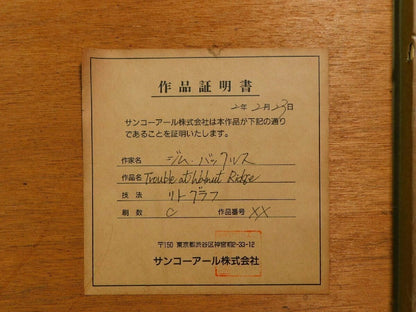 作品証明書
2年2月23日
サンコーアール株式会社は本作品が下記の通り
であることを証明いたします。
作家名 ジム・バックルス
作品名 Trouble at Walnut Ridge
技法 リトグラフ
刷数 C 作品番号 XX
〒150 東京都渋谷区神宮前2-33-12
サンコーアール株式会社